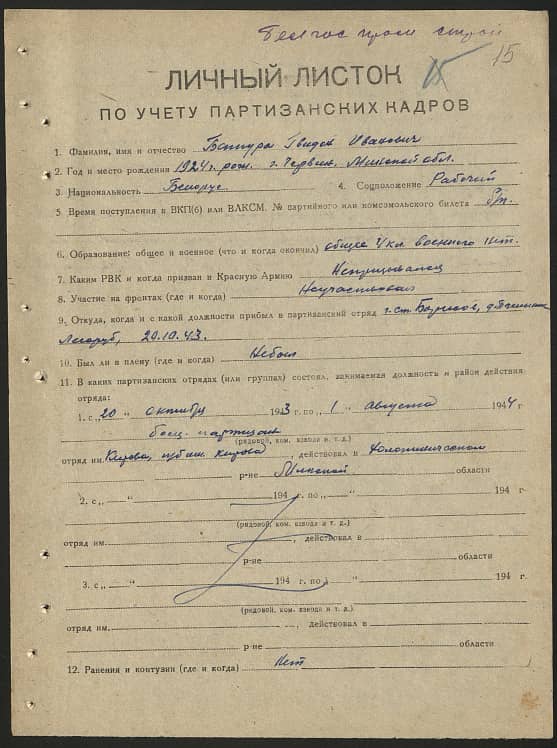 Белгоспромстрой
15
ЛИЧНЫЙ ЛИСТОК
ПО УЧЕТУ ПАРТИЗАНСКИХ КАДРОВ
1. Фамилия, имя и отчество Батура Гвидон Иванович
2. Год и место рождения 1924 г. рож. г. Червень, Минской обл.
3. Национальность Белорус 4. Соцположение Рабочий
5 Время поступления в ВКП(б) или ВЛКСМ. № партийного или комсомольского билета б/п.
6. Образование: общее и военное (что и когда окончил) общее 7 кл. военного нет.
7. Каким РВК и когда призван в Красную Армию Непризывался
8. Участие на фронтах (где и когда) Неучаствовал
9. Откуда, когда и с какой должности прибыл в партизанский отряд г. ст. Борисов, д.
Лесоруб, 20.10.43.
10. Был ли в плену (где и когда) Небыл
11. В каких партизанских отрядах (или группах) состоял, занимаемая должность и район действия
отряда:
1. с „20 " октября 1943 г. по „ 1 " августа 1944 г
боец-партизан
(рядовой, ком. взвода и т. д.)
отряд им. Кирова, бриг. Кирова, действовал в
р-не Минской области
2. с „ " 194 г. по „ " 194 г
(рядовой, ком. взвода и т. д.)
отряд им. , действовал в
р-не области
3. с „ " 194 г. по „ " 194 г.
(рядовой, ком. взвода и т. д.)
отряд им. , действовал в
р-не области
12. Ранения и контузии (где и когда) Нет